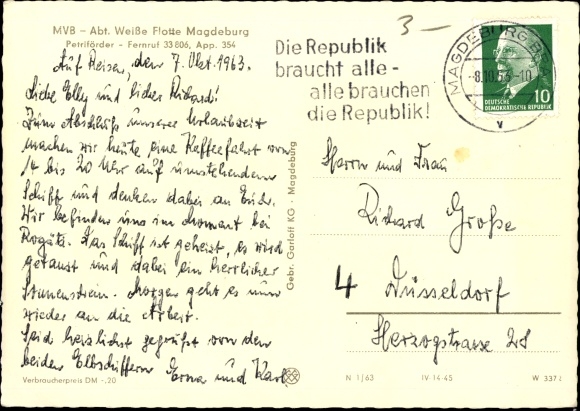 MVB – Abt. Weiße Flotte Magdeburg
Petriförder - Fernruf 33 806, App. 354
Auf Reisen, den 7. Okt. 1963.
Liebe Elly und lieber Richard!
Zum Abschluß unserer Urlaubszeit
machen wir heute eine Kaffeefahrt von
14 bis 20 Uhr auf umstehendem
Schiff und denken dabei an Euch.
Wir befinden uns im Moment bei
Rogätz. Das Schiff ist geheizt, es wird
getanzt und dabei ein herrlicher
Sonnenschein. Morgen geht es nun
wieder an die Arbeit.
Seid herzlichst gegrüßt von den
beiden Elbschiffern Erna und Karl
Verbraucherpreis DM -,20
Gebr. Garloff KG · Magdeburg
3 —
Die Republik
braucht alle -
alle brauchen
die Republik!
MAGDEBURG
-8.10.63-10
DEUTSCHE
DEMOKRATISCHE REPUBLIK
10
Herrn und Frau
Richard Große
4 Düsseldorf
Herzogstrasse 28
N 1/63
IV-14-45
W 337